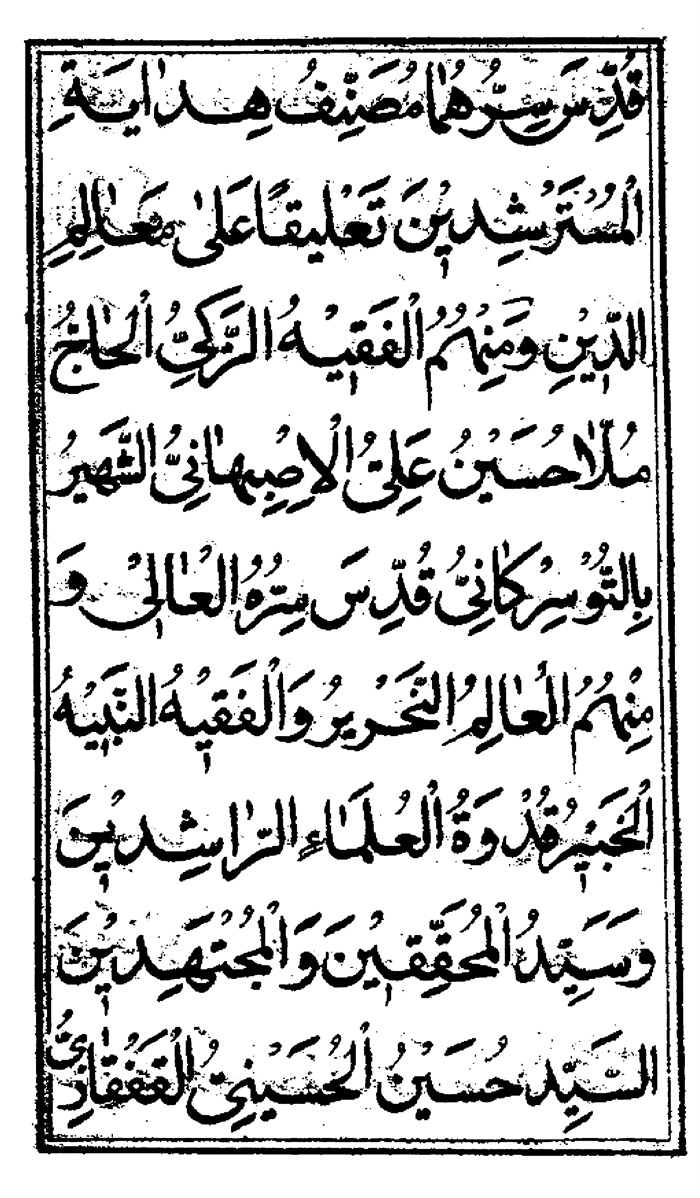 قُدِّسَ سِرُّهُمَا مُصَنِّفُ هِدَايَةِ
الْمُسْتَرْشِدِيْنَ تَعْلِيقًا عَلىٰ مَعَالِمِ
الدِّيْنِ وَمِنْهُمُ الْفَقِيْهُ الزَّكِيُّ الْحَاجُّ
مُلّا حُسَيْنُ عَلِيُّ الْاِصْبِهَانِيُّ الشَّهِيْرُ
بِالتُّوْسِرْكَانِيُّ قُدِّسَ سِرُّهُ الْعَالِىْ وَ
مِنْهُمُ الْعَالِمُ النِّحْرِيْرُ وَالْفَقِيْهُ النَّبِيْهُ
الْخَبِيْرُ قُدْوَةُ الْعُلَمَاءِ الرَّاشِدِيْنَ
وَسَيِّدُ الْمُحَقِّقِيْنَ وَالْمُجْتَهِدِيْنَ
السَّيِّدُ حُسَيْنُ الْحُسَيْنِيُّ الْقَفْقَازِيُّ